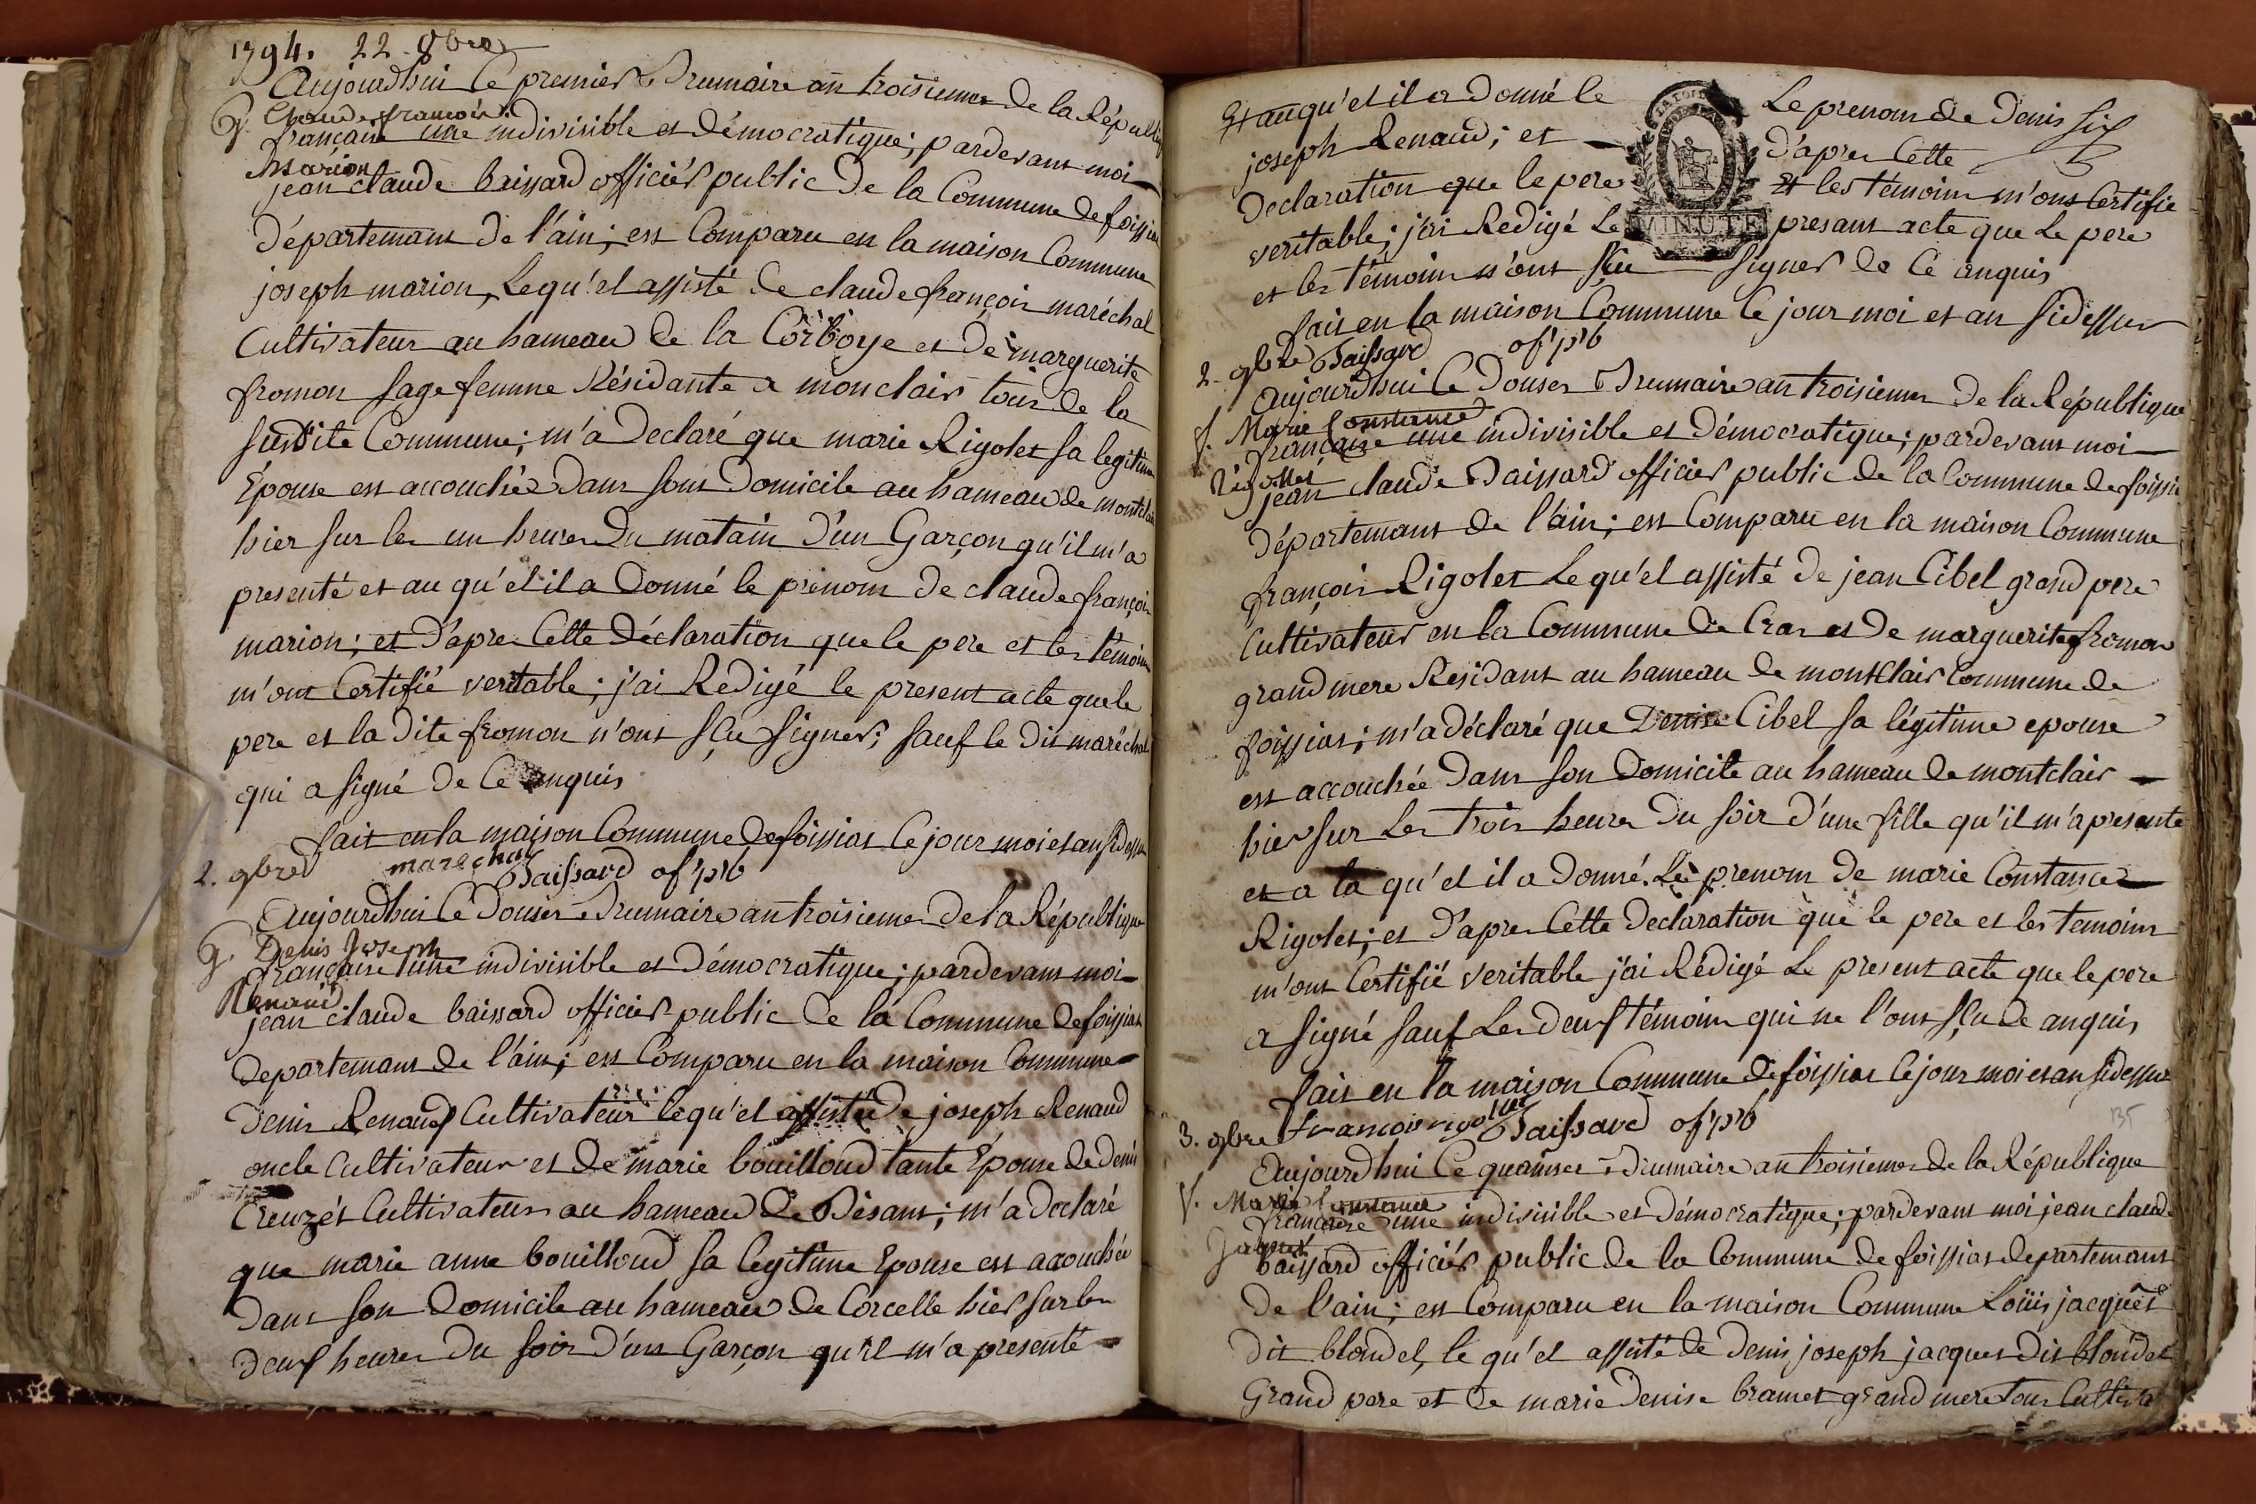 1794. 22 8bre
Aujourdhui Ce premier Brumaire an troisieme De la Républi
g. Claude françois
française une indivisible et Démocratique; pardevant moi
Marion
jean claude baissard officiér public De la Commune de foissia
département De l'áin; est Comparu en la maison Commune
joseph marion, Lequ'el assisté De claude françois maréchal
Cultivateur au hameau De la Corboye et De marguerite
fromon sage femme Résidante a monclair tous de la
susdite Commune; m'a Declaré que marie Rigolet sa legitime
Epouse est accouchée Dans sont Domicile au hameau de montclair
hier sur les un heures Du matain D'un Garçon qu'il m'a
presenté et au qu'el il a Donné le prénom De claude françois
marion; et D'apres Cette Déclaration que le pere et les témoins
m'ont Certifié veritable; j'ai Redigé le present acte que le
pere et la Dite fromon n'ont sçu signer; sauf le Dit maréchal
qui a signé De Ce enquis
fait en la maison Commune de foissiat Ce jour moi et an sidessu
marechal
2. 9bre Baissard of'p'b
Aujourdhui Ce Douser Brumaire an troisieme De la République
g. Denis Joseph
française une indivisible et Démocratique; pardevant moi
Renaud
jean claude baissard officiér public De la Commune De foissiat
departement de l'ain; est Comparu en la maison Commune
Denis Renaud Cultivateur lequ'el assisté De joseph Renaud
oncle Cultivateur et De marie bouilloud tante Epouse De denis
Creuzét Cultivateur au hameau De Bésant; m'a Declaré
que marie anne bouilloud sa legitime Epouse est acouchée
Dans son Domicile au hameau de Corcelle hier sur les
Deux heures Du soir D'un Garçon qu'il m'a presenté
Et auqu'el il a Donné le Le prenom De Denis six
joseph Renaud; et D'apres Cette
Declaration que le pere Et les témoins m'ont Certifié
veritable; j'ai Redigé Le MINUTE presant acte que Le pere
et les témoins n'ont sçu signer De Ce anquis
fait en la maison Commune Ce jour moi et an sidessus
2. 9bre Baissard of'p'b
Aujourdhui Ce Douser Brumaire an troisieme De la République
f. Marie Constance
française une indivisible et Démocratique; pardevant moi
Rigollet
jean claude Baissard officier public de la Commune de foissia
Département De l'áin; est Comparu en la maison Commune
françois Rigolet Le qu'el assisté De jean Cibel grand pere
Cultivateur en la Commune De Cras et De marguerite fromon
grand mere Residant au hameau De montClair Commune De
foissiat; m'a déclaré que Denise Cibel sa légitime epouse
est accouchée Dans son Domicile au hameau De montclair
hier sur Les trois heures Du soir D'une fille qu'il m'a presenté
et a la qu'el il a Donné Le prenom De marie Constance
Rigolet; et D'apres Cette Declaration que le pere et les temoins
m'ont Certifié veritable j'ai Rédigé Le present acte que le pere
a signé sauf Les Deux témoins qui ne l'ont sçu De anquis
fait en la maison Commune De foissiat Ce jour moi et an sidessus
3. 9bre francois rigolet Baissard of'p'b
135
Aujourdhui Ce quainser Brumaire an troisieme De la République
f. Marie Constance
française une indivisible et Démocratique; pardevant moi jean claude
baissard officiér public De la Commune De foissiat departement
De l'ain; est Comparu en la maison Commune Loüis jacques
Dit blondel, le qu'el assisté De Denis joseph jacques Dit blondel
Grand pere et De marie Denise bramet grand mere tous Cultiva